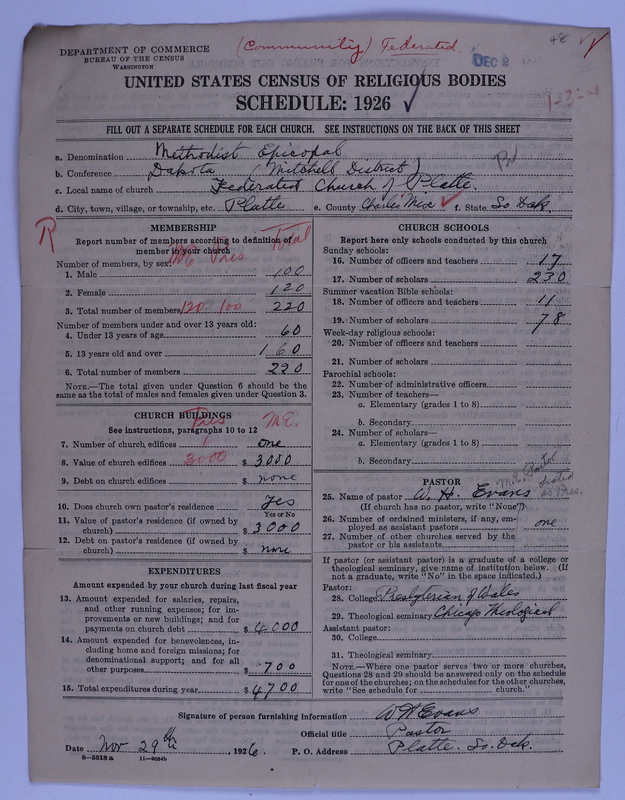 DEPARTMENT OF COMMERCE
BUREAU OF THE CENSUS
WASHINGTON
(Community) Federated.
DEC 2
48
UNITED STATES CENSUS OF RELIGIOUS BODIES
SCHEDULE: 1926
FILL OUT A SEPARATE SCHEDULE FOR EACH CHURCH. SEE INSTRUCTIONS ON THE BACK OF THIS SHEET
a. Denomination Methodist Epicopal
b. Conference Dakota (Mitchell District)
c. Local name of church Federated Church of Platte.
d. City, town, village, or township, etc. Platte e. County Charles Mix f. State So Dak.
R
MEMBERSHIP
Report number of members according to definition of
member in your church
ME Pres Total
Number of members, by sex:
1. Male 100
2. Female 120
3. Total number of members 120 100 220
Number of members under and over 13 years old:
4. Under 13 years of age 60
5. 13 years old and over 160
6. Total number of members 220
NOTE.—The total given under Question 6 should be the
same as the total of males and females given under Question 3.
CHURCH BUILDINGS
See instructions, paragraphs 10 to 12
Pres M.E.
7. Number of church edifices 1 one
8. Value of church edifices 3000 $ 3000
9. Debt on church edifices $ none
10. Does church own pastor's residence yes
Yes or No
11. Value of pastor's residence (if owned by
church) $ 3000
12. Debt on pastor's residence (if owned by
church) $ none
EXPENDITURES
Amount expended by your church during last fiscal year
13. Amount expended for salaries, repairs,
and other running expenses; for im-
provements or new buildings; and for
payments on church debt $ 4000
14. Amount expended for benevolences, in-
cluding home and foreign missions; for
denominational support; and for all
other purposes $ 700
15. Total expenditures during year $ 4700
CHURCH SCHOOLS
Report here only schools conducted by this church
Sunday schools:
16. Number of officers and teachers 17
17. Number of scholars 230
Summer vacation Bible schools:
18. Number of officers and teachers 11
19. Number of scholars 78
Week-day religious schools:
20. Number of officers and teachers
21. Number of scholars
Parochial schools:
22. Number of administrative officers
23. Number of teachers—
a. Elementary (grades 1 to 8)
b. Secondary
24. Number of scholars—
a. Elementary (grades 1 to 8)
b. Secondary
PASTOR
25. Name of pastor W. H. Evans
(If church has no pastor, write "None")
Pastor
listed
as Pres.
26. Number of ordained ministers, if any, em-
ployed as assistant pastors one
27. Number of other churches served by the
pastor or his assistants
If pastor (or assistant pastor) is a graduate of a college or
theological seminary, give name of institution below. (If
not a graduate, write "No" in the space indicated.)
Pastor:
28. College Presbyterian of Wales
29. Theological seminary Chicago Theological
Assistant pastor:
30. College
31. Theological seminary
NOTE.—Where one pastor serves two or more churches,
Questions 28 and 29 should be answered only on the schedule
for one of the churches; on the schedules for the other churches,
write "See schedule for church."
Signature of person furnishing information W H Evans
Official title Pastor
Date Nov 29th, 1926. P. O. Address Platte. So. Dak.
8—5518 a